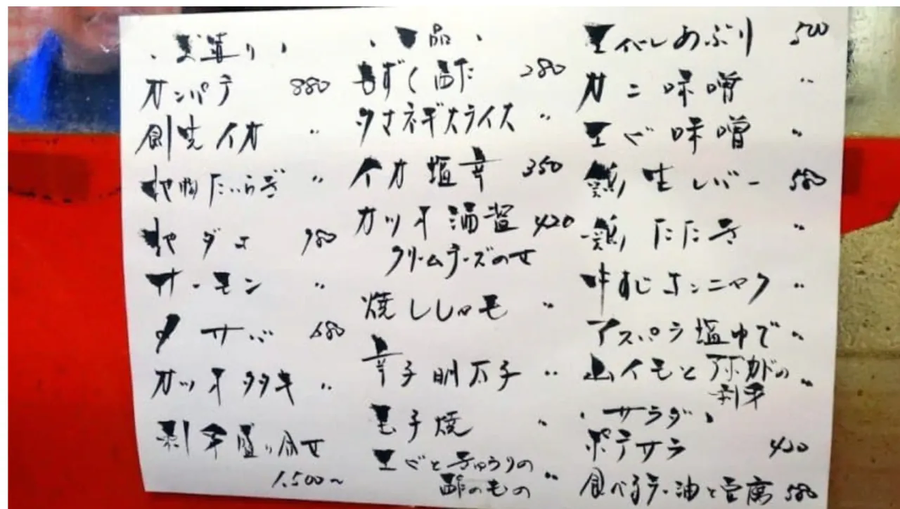 ・お造り・
カンパチ 880
剣先イカ 〃
地物たいらぎ 〃
地ダコ 980
サーモン 〃
〆サバ 680
カツオタタキ 〃
刺身盛り合せ
1,500〜
・一品・
もずく酢 280
タマネギスライス 〃
イカ塩辛 350
カツオ酒盗 420
クリームチーズのせ
焼ししゃも 〃
辛子明太子 〃
玉子焼 〃
エビときゅうりの
酢のもの 〃
エイヒレあぶり 500
カニ味噌 〃
エビ味噌 〃
鶏生レバー 580
鶏たたき 〃
牛すじコンニャク 〃
アスパラ塩ゆで 〃
山イモとアボカドの
刺身 〃
・サラダ・
ポテサラ 420
食べるラー油と豆腐 580